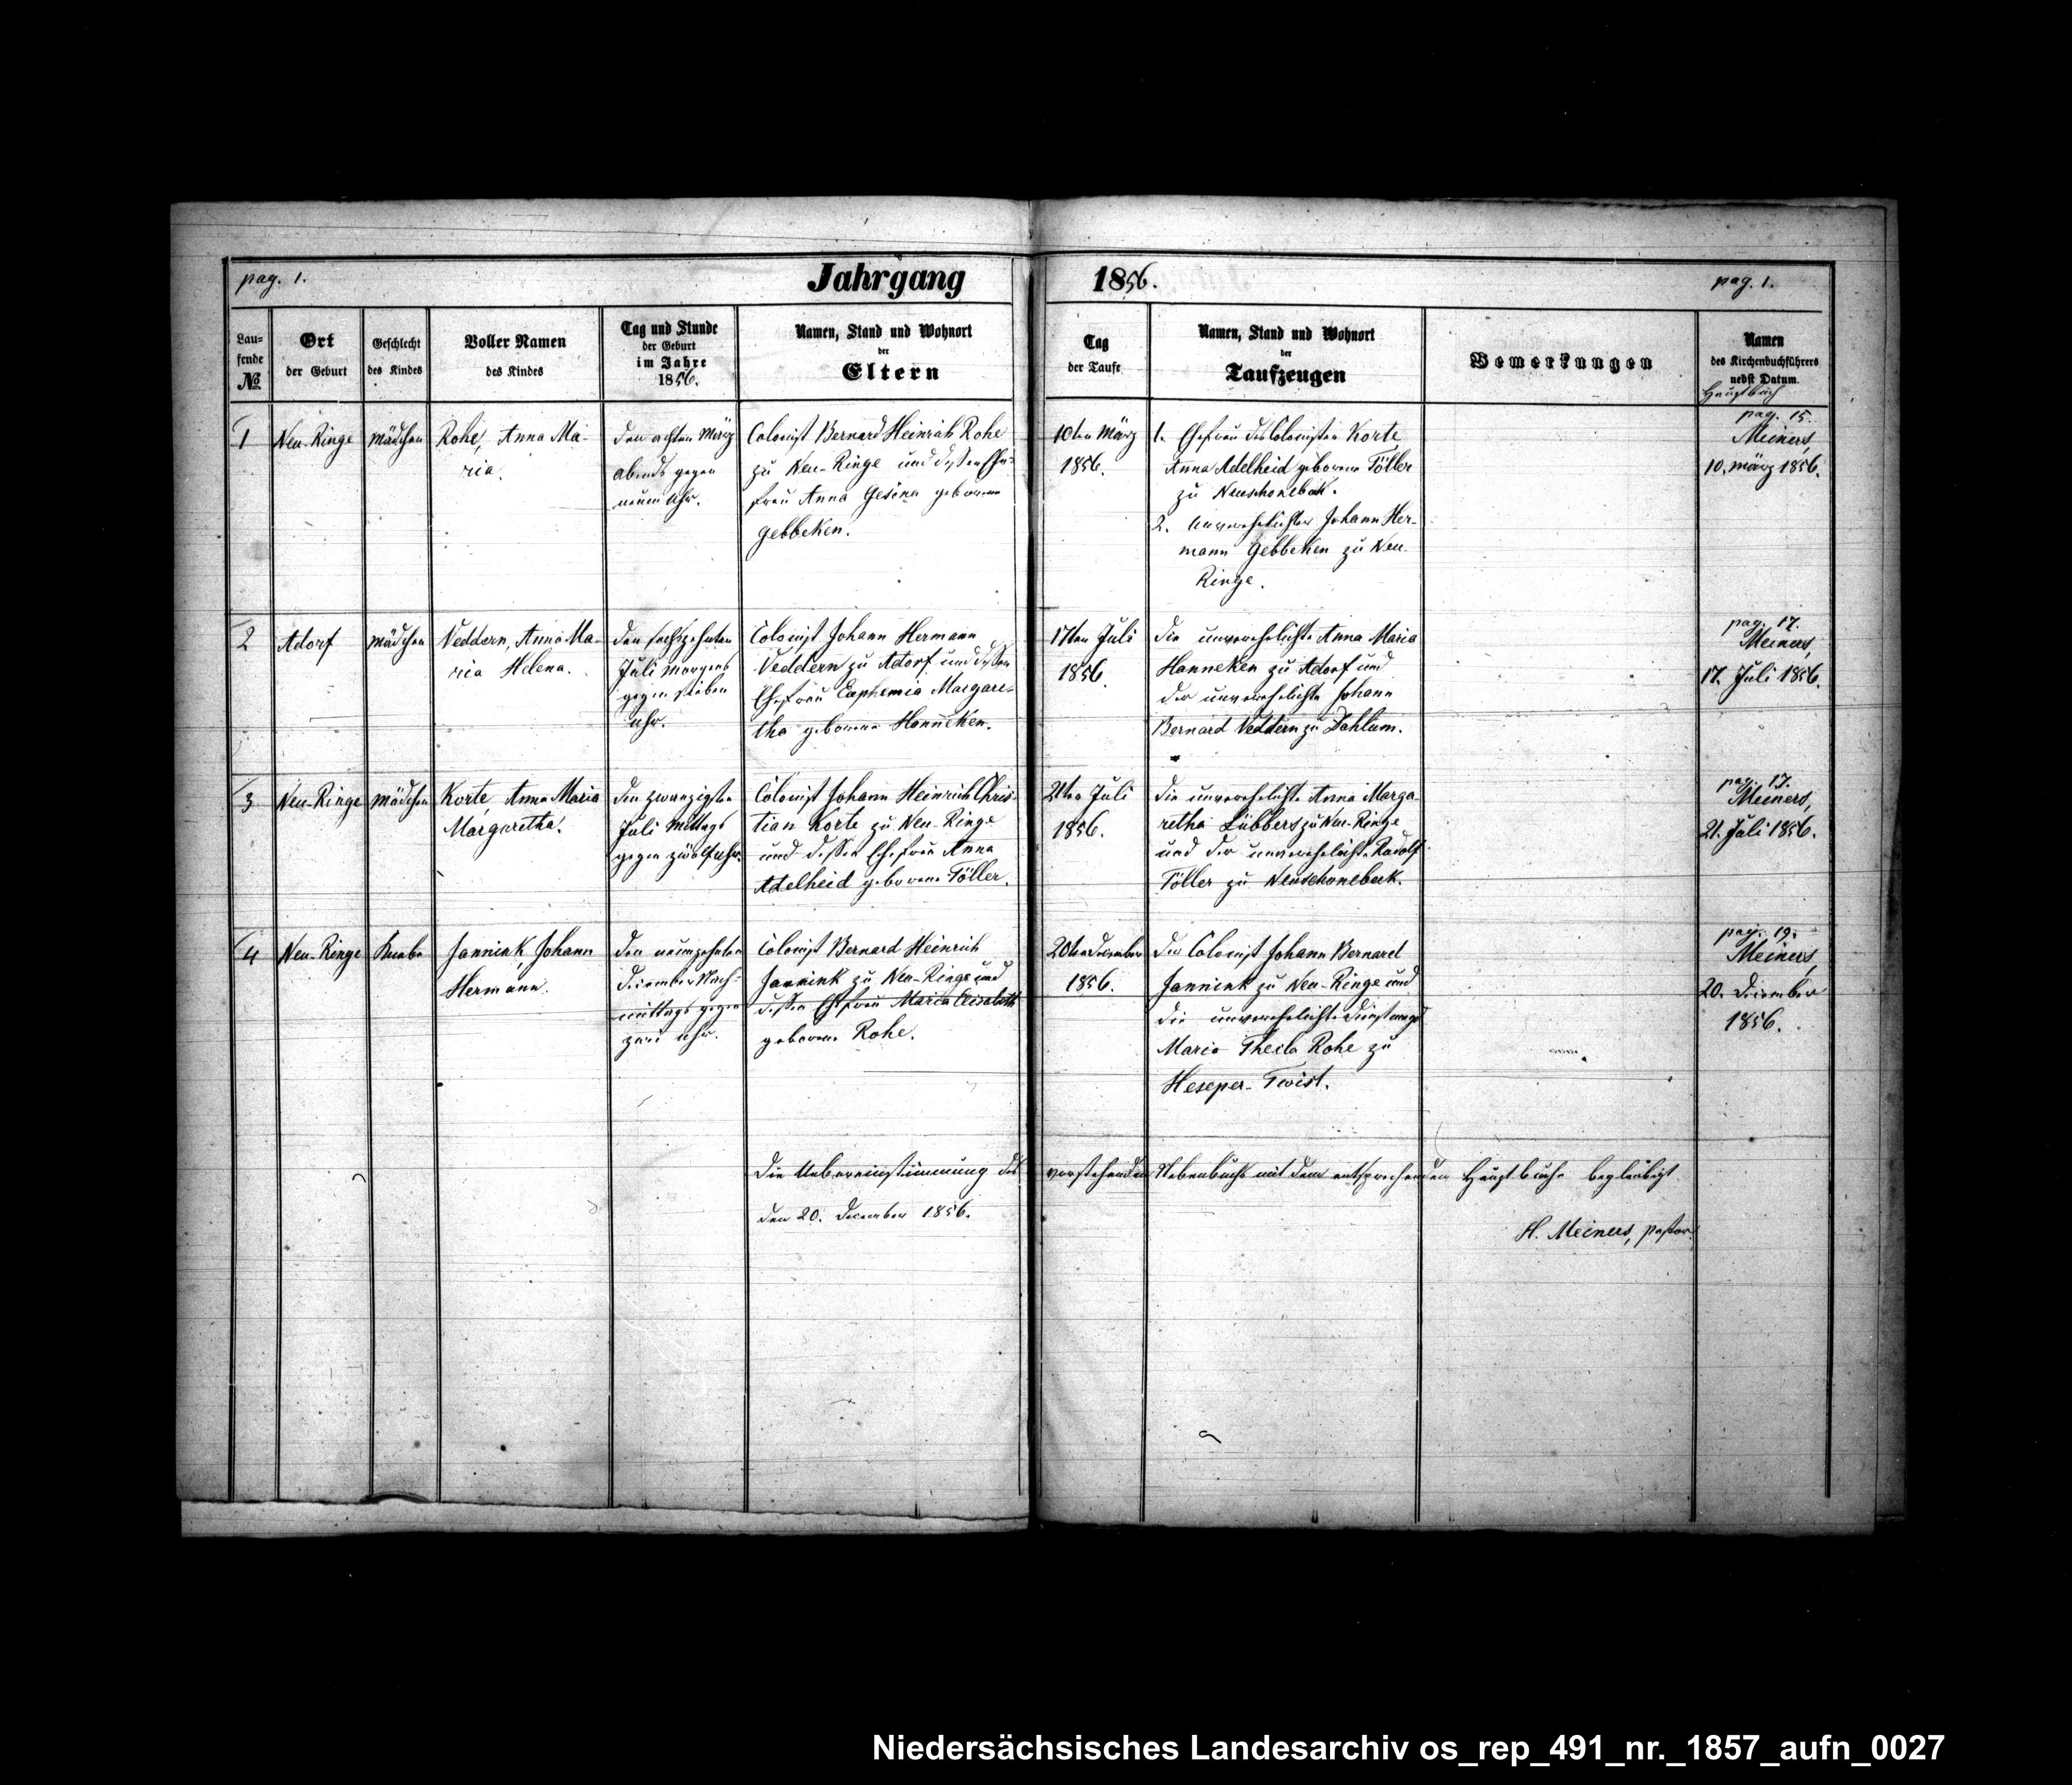 pag. 1.
Jahrgang 1856.
pag. 1.
Lau=
fende
No
Ort
der Geburt
Geschlecht
des Kindes
Voller Namen
des Kindes
Tag und Stunde
der Geburt
im Jahre
1856.
Namen, Stand und Wohnort
der
Eltern
Tag
der Taufe
Namen, Stand und Wohnort
der
Taufzeugen
Bemerkungen
Namen
des Kirchenbuchführers
nebst Datum.
Hauptbuch
1
Neu-Ringe
Mädchen
Rohe, Anna Ma-
ria.
den achten März
abends gegen
neun Uhr.
Colonist Bernard Heinrich Rohe
zu Neu-Ringe und dessen Ehe-
frau Anna Gesina geborene
Gebbeken.
10ten März
1856.
1. Ehefrau des Colonisten Korte
Anna Adelheid geborene Töller
zu Neuschonebek.
2. unverehelichter Johann Her-
mann Gebbeken zu Neu-
Ringe.
pag. 15.
Meiners,
10. März 1856.
2
Adorf
Mädchen
Veddern, Anna Ma-
ria Helena.
den sechszehnten
Juli morgens
gegen sieben
Uhr.
Colonist Johann Hermann
Veddern zu Adorf und dessen
Ehefrau Euphemia Margare-
tha geborene Hanneken.
17ten Juli
1856.
die unverehelichte Anna Maria
Hanneken zu Adorf und
der unverehelichte Johann
Bernard Veddern zu Dahlum.
pag. 17.
Meiners,
17. Juli 1856.
3
Neu-Ringe
Mädchen
Korte Anna Maria
Margaretha.
den zwanzigsten
Juli Mittags
gegen zwölf Uhr.
Colonist Johann Heinrich Chris-
tian Korte zu Neu-Ringe
und dessen Ehefrau Anna
Adelheid geborene Töller.
21ten Juli
1856.
die unverehelichte Anna Marga-
retha Lübbers zu Neu-Ringe
und der unverehelichte Rudolf
Töller zu Neuschonebeek.
pag. 17.
Meiners,
21. Juli 1856.
4
Neu-Ringe
Knabe
Jannink, Johann
Hermann.
den neunzehnten
December Nach-
mittags gegen
zwei Uhr.
Colonist Bernard Heinrich
Jannink zu Neu-Ringe und
dessen Ehefrau Maria Elisabeth
geborene Rohe.
20ten December
1856.
der Colonist Johann Bernard
Jannink zu Neu-Ringe und
die unverehelichte Dienstmagd
Maria Thecla Rohe zu
Heseper-Twist.
pag. 19.
Meiners,
20. December
1856.
Die Uebereinstimmung des vorstehenden Nebenbuchs mit dem entsprechenden Hauptbuche beglaubigt
den 20. December 1856.
H. Meiners, pastor.
Niedersächsisches Landesarchiv os_rep_491_nr._1857_aufn_0027